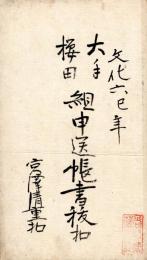 文化六巳年
大手
桜田
組申送帳書抜扣
宮澤清重扣